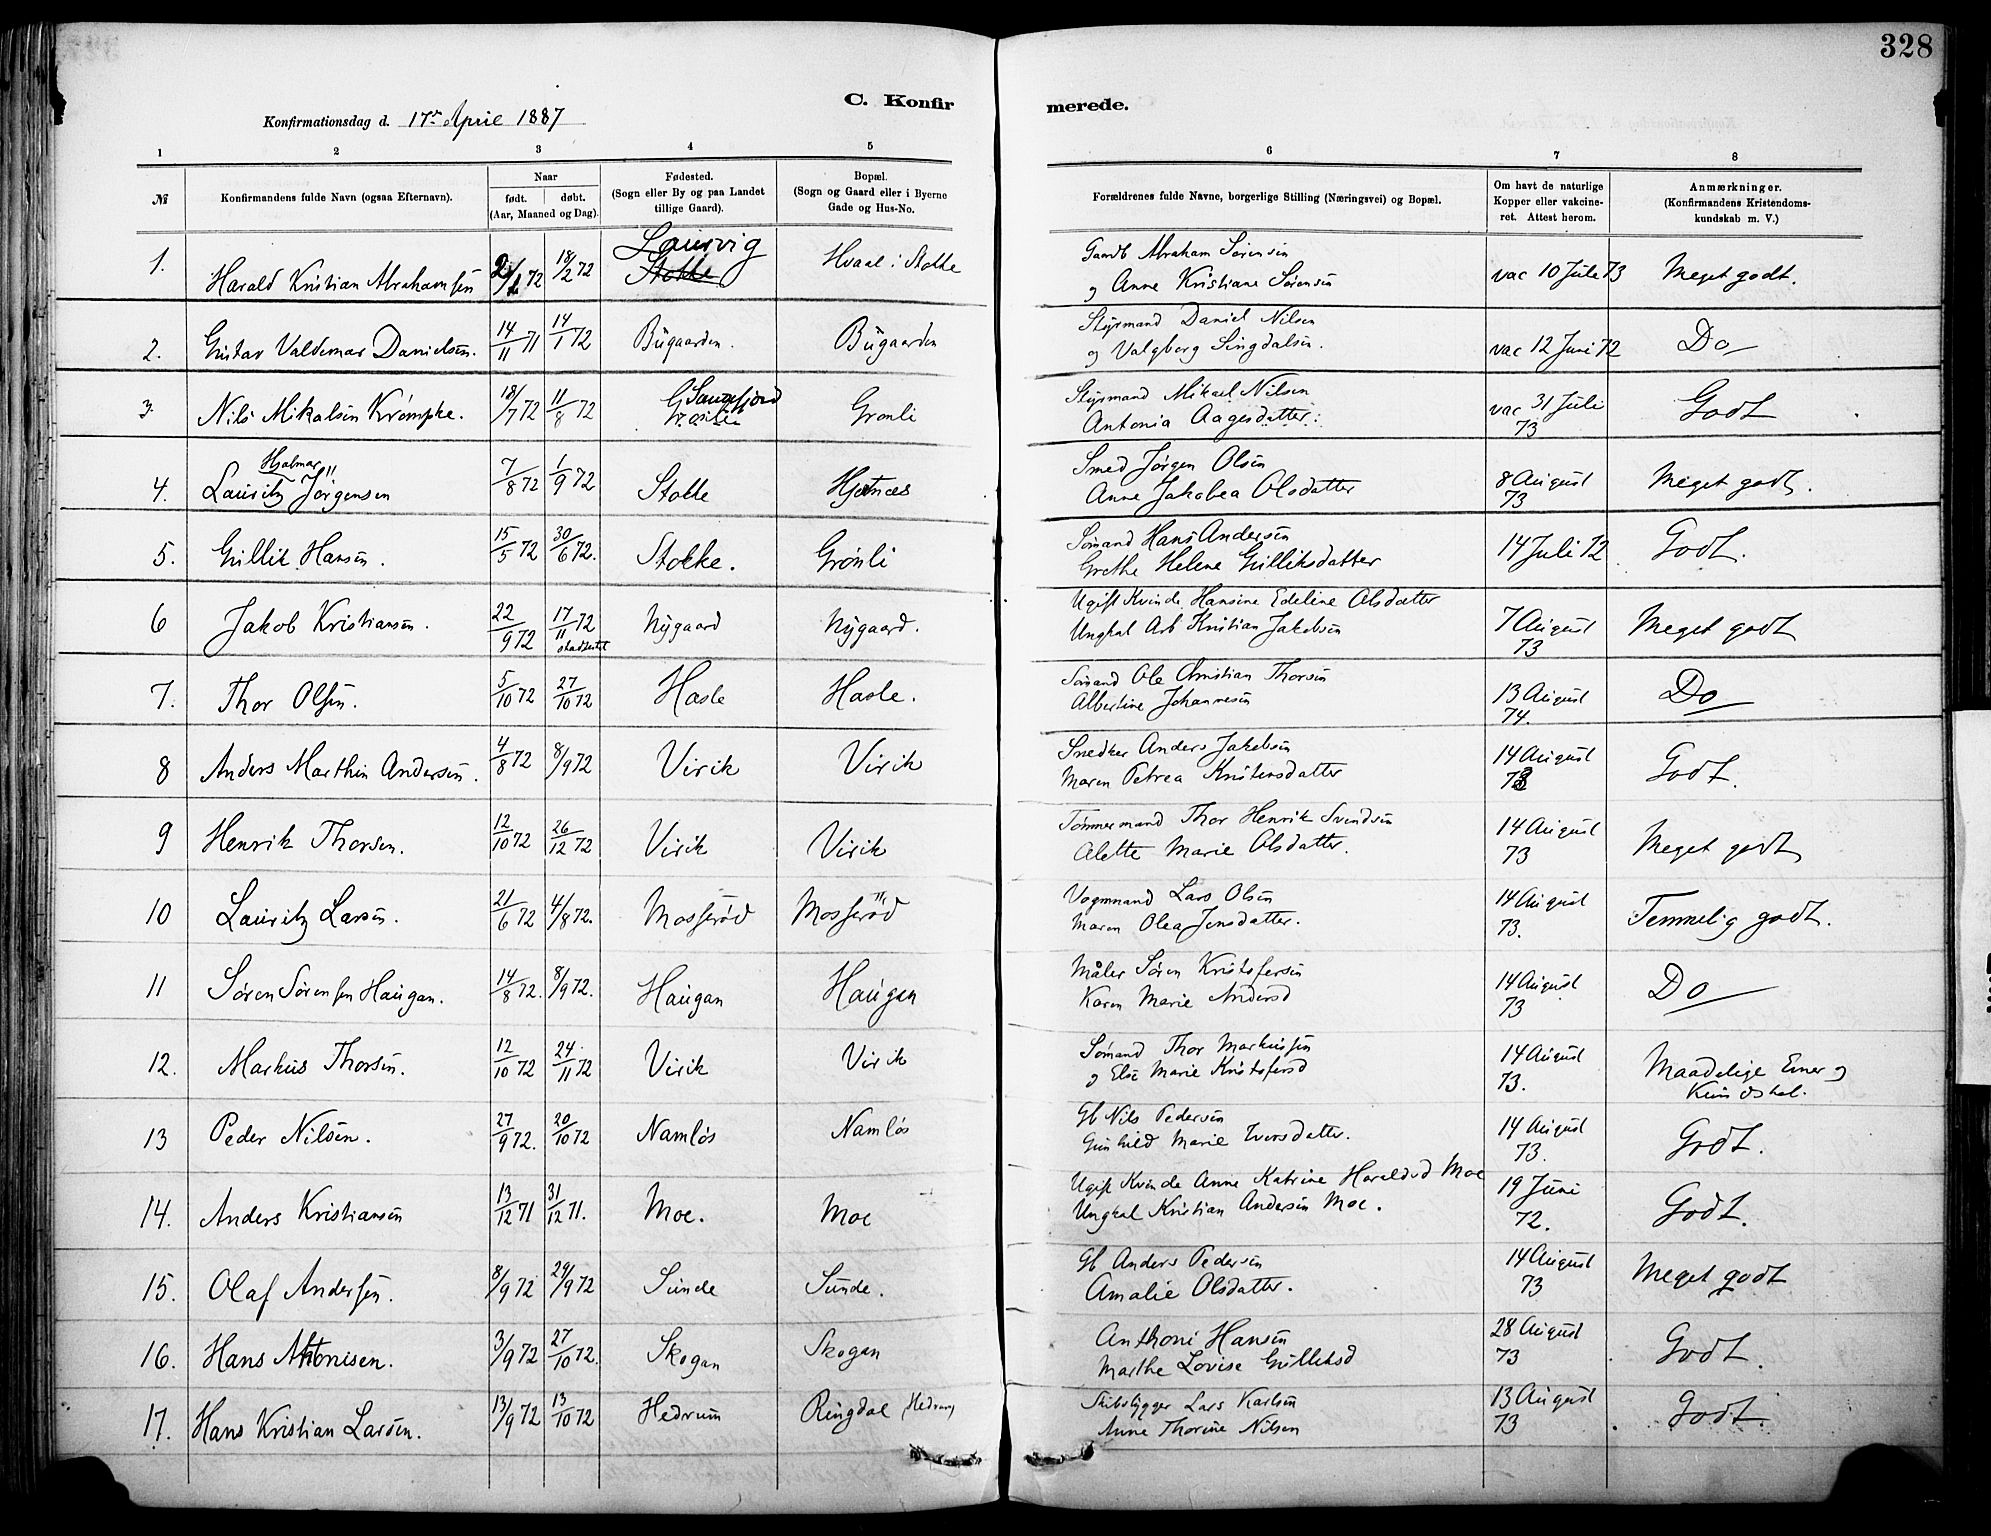 328
C. Konfirmerede.
Konfirmationsdag d. 17de April 1887
1 2 3 4 5 6 7 8
№ Konfirmandens fulde Navn (ogsaa Efternavn). Naar født. døbt. (Aar, Maaned og Dag). Fødested. (Sogn eller By og paa Landet tillige Gaard). Bopæl. (Sogn og Gaard eller i Byerne Gade og Hus-No. Forældrenes fulde Navne, borgerlige Stilling (Næringsvei) og Bopæl. Om havt de naturlige Kopper eller vakcineret. Attest herom. Anmærkninger. (Konfirmandens Kristendomskundskab m. V.)
1. Harald Kristian Abrahamsen 2/1 72 18/2 72 Laurvig Stokke Hvaal i Stokke Gaardb Abraham Sørensen vac 10 Juli 73 Meget godt.
og Anne Kristiane Sørensen
2. Gustav Valdemar Danielsen. 14/11 71 14/1 72 Bugaarden. Bugaarden Styrmand Daniel Nilsen vac 12 Juni 72 Do
og Valgborg Lingdalsen.
3. Nils Mikalsen Krømpke. 18/7 72 11/8 72 Sandefjord Grønli Styrmand Mikael Nilsen vac 31 Juli 73 Godt
Antonia Aagesdatter.
4. Lauritz Hjalmar Jörgensen 7/8 72 1/9 72 Stokke Hjertnæs Smed Jørgen Olsen 8 August 73 Meget godt.
Anne Jakobea Olsdatter
5. Gullik Hansen. 15/5 72 30/6 72. Stokke. Grønli Sømand Hans Andersen 14 Juli 72 Godt.
Grethe Helene Gulliksdatter
6 Jakob Kristiansen. 22/9 72 17/11 72 stadfestet Nygaard Nygaard. Ugift Kvinde Hansine Edeline Olsdatter 7 August 73 Meget godt
Ungkal Arb Kristian Jakobsen
7. Thor Olsen. 5/10 72 27/10 72 Hasle Hasle. Sømand Ole Christian Thorsen 13 August 74. Do
Albertine Johannesen
8 Anders Marthin Andersen. 4/8 72 8/9 72 Virik Virik Snedker Anders Jakobsen 14 August 73 Godt.
Maren Petrea Kristensdatter
9 Henrik Thorsen. 12/10 72 26/12 72 Virik Virik Tømmermand Thor Henrik Svendsen 14 August 73 Meget godt
Alette Marie Olsdatter.
10 Lauritz Larsen. 21/6 72 4/8 72. Mosserød Mosseröd Vognmand Lars Olsen 14 August 73. Temmelig godt.
Maren Olea Jensdatter.
11 Søren Sørensen Haugan. 14/8 72. 8/9 72. Haugan Haugan Måler Søren Kristofersen 14 August 73 Do
Karen Marie Andersd
12. Markus Thorsen. 12/10 72 24/11 72 Virik Virik Sømand Thor Markussen 14 August 73. Maadelige Evner og Kundskab.
og Else Marie Kristofersd
13 Peder Nilsen. 27/9 72. 20/10 72 Namløs Namløs Gb Nils Pedersen 14 August 73. Godt.
Gunhild Marie Iversdatter.
14. Anders Kristiansen 13/12 71 31/12 71. Moe. Moe Ugift Kvinde Anne Katrine Haraldsd Moe 19 Juni 72. Godt.
Ungkal Kristian Andersen Moe.
15. Olaf Andersen. 8/9 72 29/9 72 Sunde Sunde. Gb Anders Pedersen 14 August 73 Meget godt
Amalie Olsdatter.
16. Hans Antonisen. 3/9 72 27/10 72. Skogan Skogan Anthoni Hansen 28 August 73 Godt.
Marthe Lovise Gulliksd
17. Hans Kristian Larsen. 13/9 72 13/10 72 Hedrum Ringdal (Hedrum) Skibsbygger Lars Karlsen 13 August 73 Godt.
Anne Thorine Nilsen